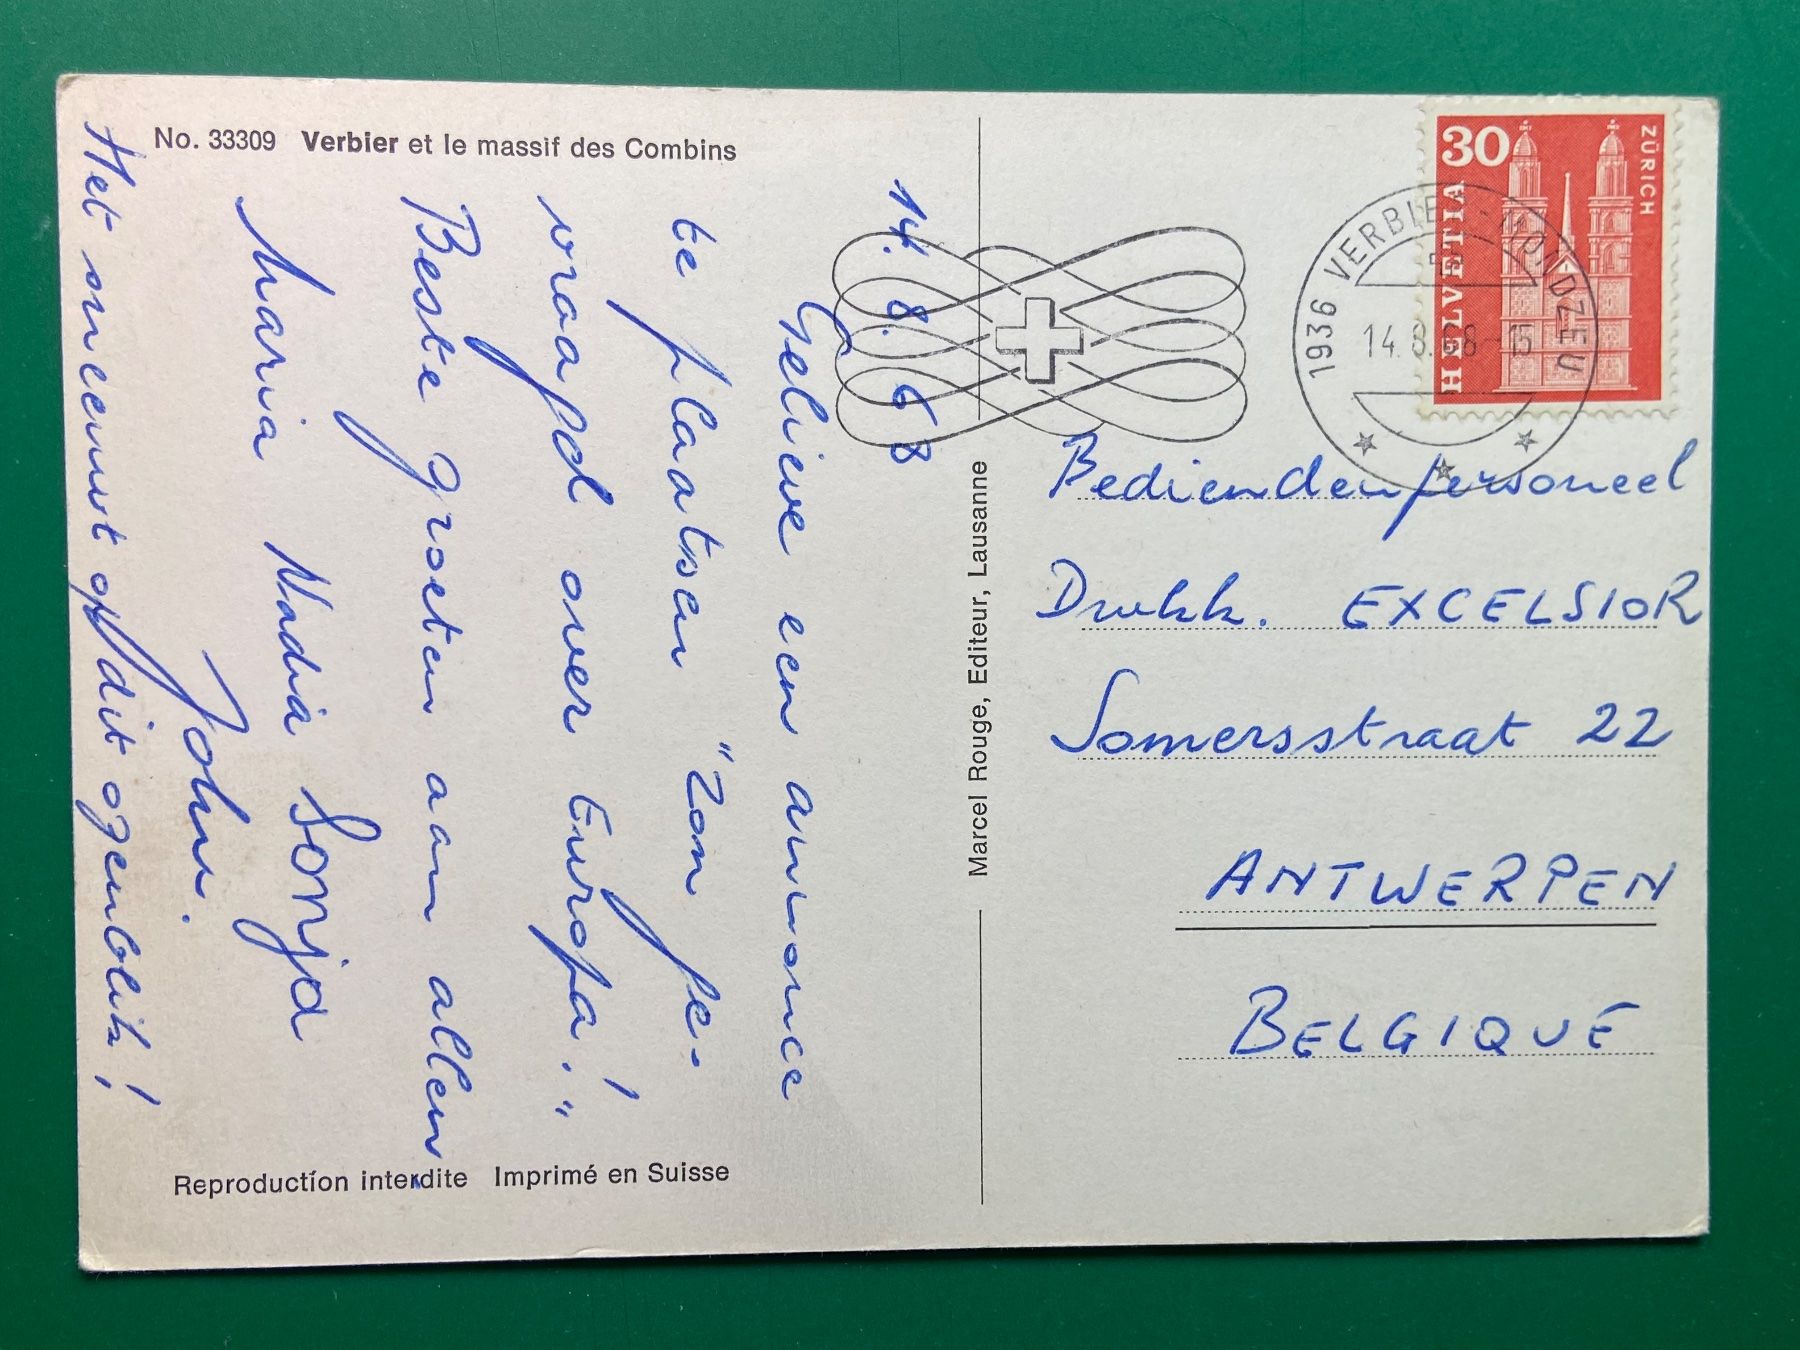 No. 33309 Verbier et le massif des Combins
14.8.68
Gelieve een annonce
te plaatsen "Zon ge-
vraagd over Europa!"
Beste groeten aan allen
Maria Nadia Sonja
John.
Het sneeuwt op dit ogenblik!
Reproduction interdite Imprimé en Suisse
Marcel Rouge, Editeur, Lausanne
30
ZÜRICH
HELVETIA
1936 VERBIER-MONDZEU
14.8.68-15
Bediendenpersoneel
Drukk. EXCELSIOR
Somersstraat 22
ANTWERPEN
BELGIQUE